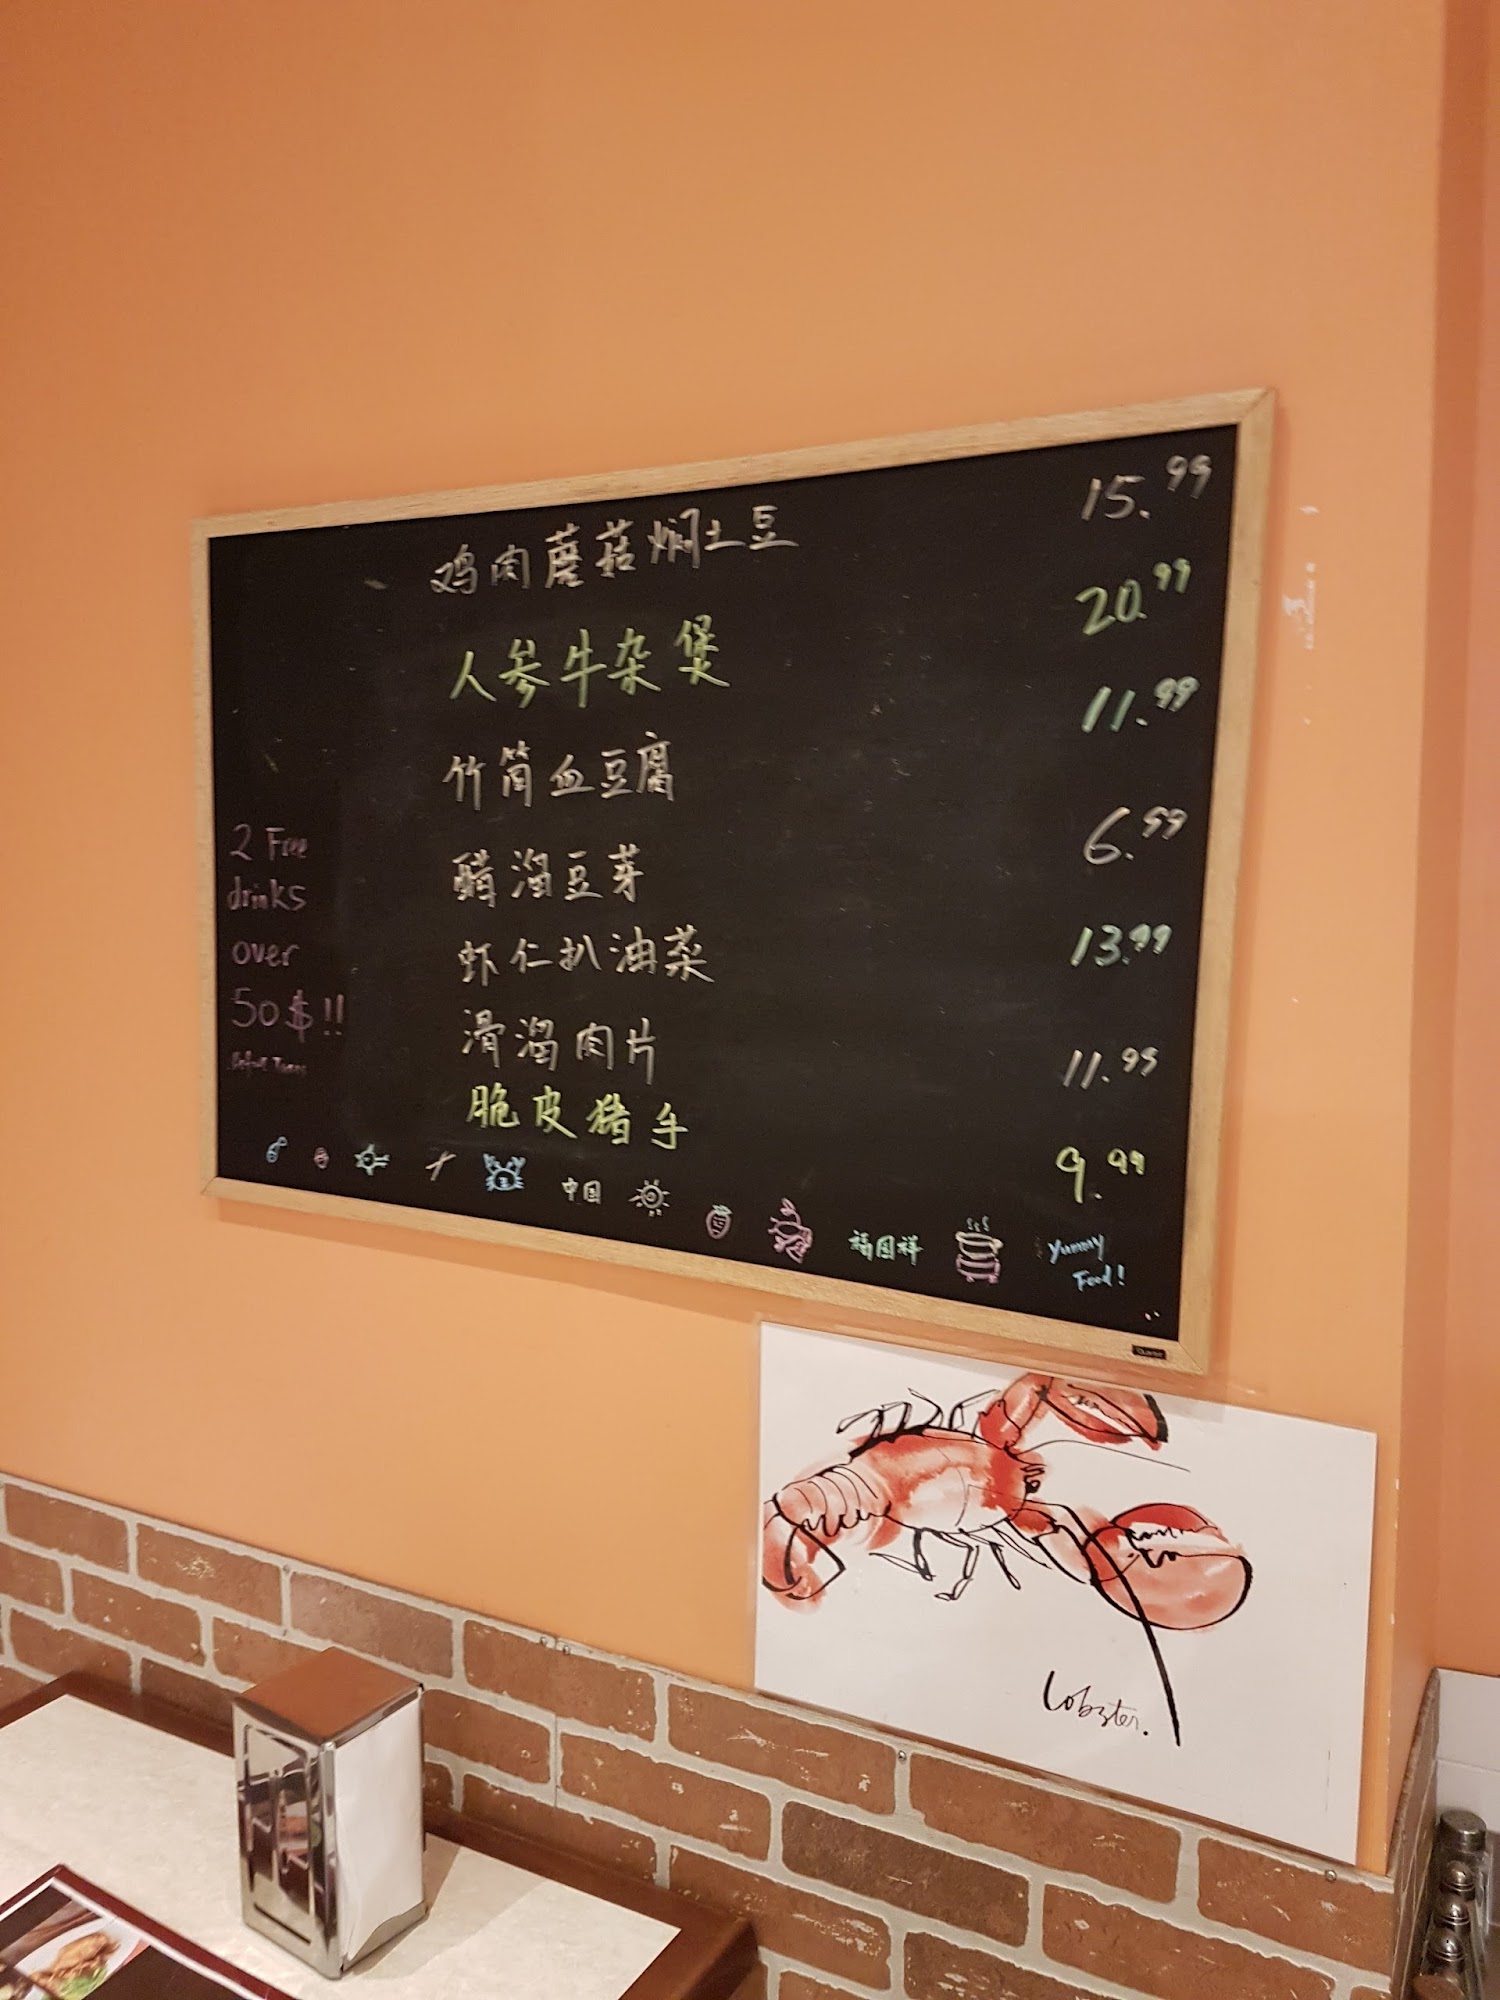 鸡肉蘑菇焖土豆 15.99
人参牛杂煲 20.99
竹筒血豆腐 11.99
醋溜豆芽 6.99
虾仁扒油菜 13.99
滑溜肉片 11.99
脆皮猪手 9.99
2 Free
drinks
over
50$!!
中国
福国祥
Yummy
Food!
Lobzter.